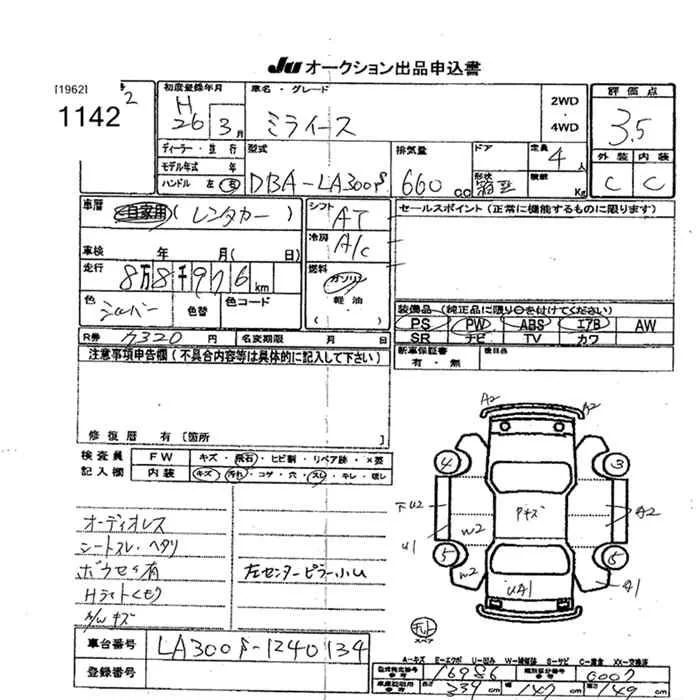 JU オークション出品申込書
[1962]
1142
2
初度登録年月
H
26 3月
車名・グレード
ミライース
2WD
・
4WD
評価点
3.5
外装 内装
C C
ディーラー・並行
モデル年式 年
ハンドル 左 右
型式
DBA-LA300S
排気量
660 cc
ドア
形状
箱型
定員
4人
積載
Kg
車歴
自家用(レンタカー)
車検 年 月(日)
走行
8万8千976km
色
シルバー
色替
色コード
シフト
AT
冷房
A/C
燃料
ガソリン
軽油
セールスポイント(正常に機能するものに限ります)
装備品(純正品に限り○を付けてください)
PS PW ABS エアB AW
SR ナビ TV カワ
R券 7320円
名変期限 月 日
新車保証書
有・無
後日品
注意事項申告欄(不具合内容等は具体的に記入して下さい)
修復歴 有[箇所 ]
検査員
記入欄
FW キズ・飛石・ヒビ割・リペア跡・×要
内装 キズ・汚れ・コゲ・穴・スレ・キレ・欠し
オーディオレス
シートスレ・ヘタリ
ボウセイ有
Hライトくもり
左センターピラー小U
A2
A2
4
3
下U2
A2
W2
Pキズ
U1
5
5
W2
UA1
A1
スペア
A-キズ E-エクボ U-凹み W-補修跡 S-サビ C-腐食 XX-交換済
車台番号
LA300S-1240134
登録番号
型式指定番号 16986
類別区分番号 0007
339cm 147cm 149cm